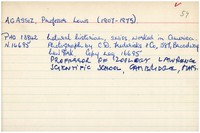 57
AGASSIZ, Professor Louis (1807-1873)
PHO 13862 Natural historian, Swiss, worked in America.
N.16695 Photograph by C.D. Fredricks & Co, 587, Broadway
New York. Copy neg. 16695
PROFESSOR OF ZOOLOGY LAWRENCE
SCIENTIFIC SCHOOL, CAMBRIDGE, MASS.